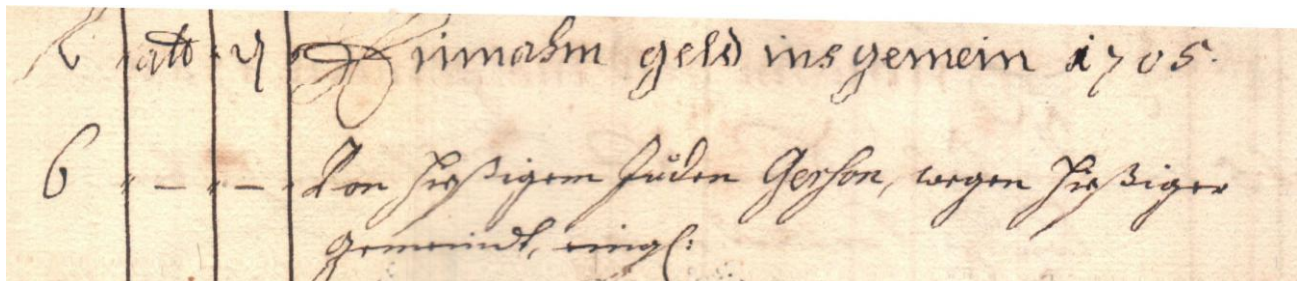 fl alb ₰ Einnahm geld ins gemein 1705.
6 " — " — " Von hießigem Juden Gerson, wegen hießiger
gemeindt, eing: